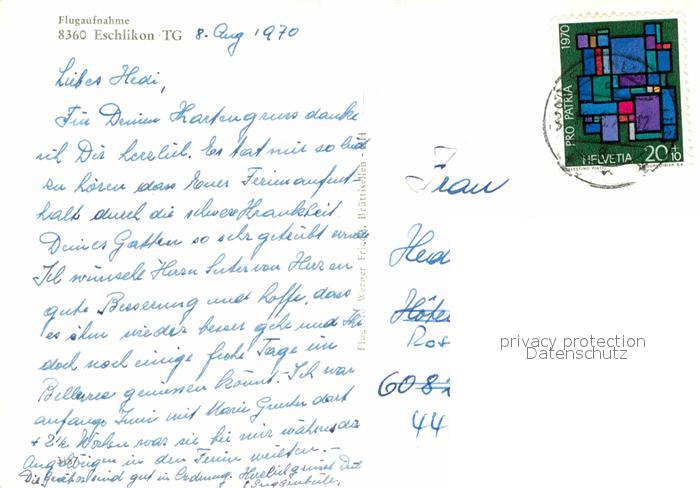 Flugaufnahme
8360 Eschlikon TG 8. Aug 1970
Liebes Hedi,
Für Deinen Kartengruss danke
ich Dir herzlich. Es tat mir so leid
zu hören dass Euer Ferienaufent-
halt durch die schwere Krankheit
Deines Gatten so sehr getrübt wurde
Ich wünsche Herrn Suter von Herzen
gute Besserung und hoffe, dass
es ihm wieder besser geht und Ihr
doch noch einige frohe Tage im
geniessen könnt. Ich war
anfangs Juni mit Marie dort
+ 2½ Wochen war sie bei mir während
Angehörigen in den Ferien weilten. –
Die sind gut in Ordnung. Herzlich grüsst Dich
Flug Werner Friedli, Brüttisellen - ZH
PRO PATRIA 1970
HELVETIA 20+10
Frau
Hed
Ros
6082
44
privacy protection
Datenschutz